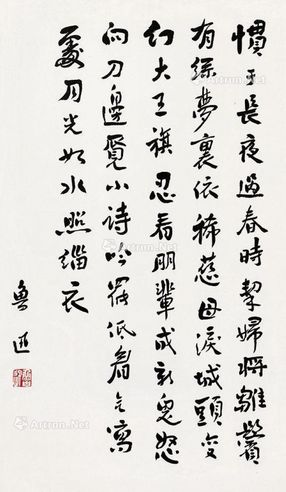 慣于長夜過春時挈婦將雛鬢
有絲夢裏依稀慈母淚城頭變
幻大王旗忍看朋輩成新鬼怒
向刀邊覓小詩吟罷低眉無寫
處月光如水照緇衣
魯迅
Artron.Net
Artron.Net
Artron.Net
Artron.Net